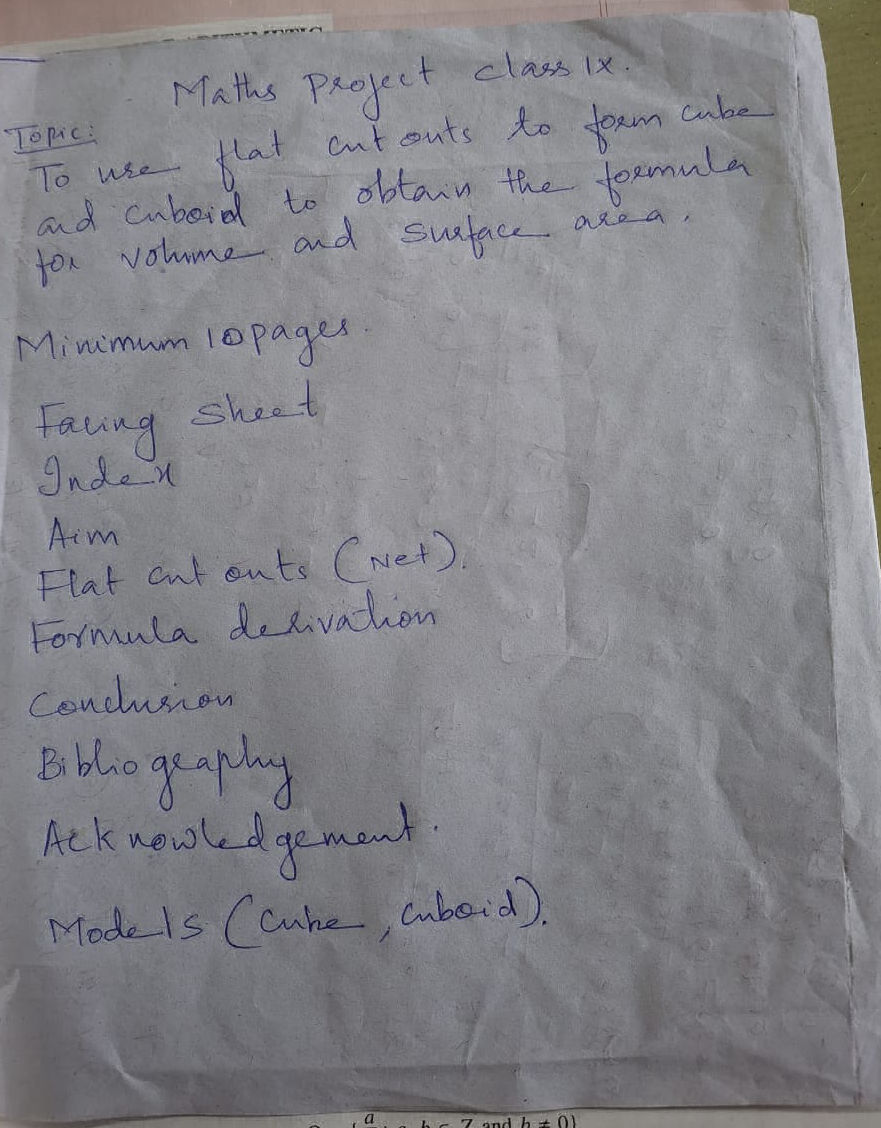 Maths Project class IX.
Topic:
To use flat cut outs to form cube
and cuboid to obtain the formula
for volume and surface area.
Minimum 10 pages.
Facing sheet
Index
Aim
Flat cut outs (Net).
Formula derivation
Conclusion
Bibliography
Acknowledgement.
Models (Cube, Cuboid).
Z and b ≠ 0}